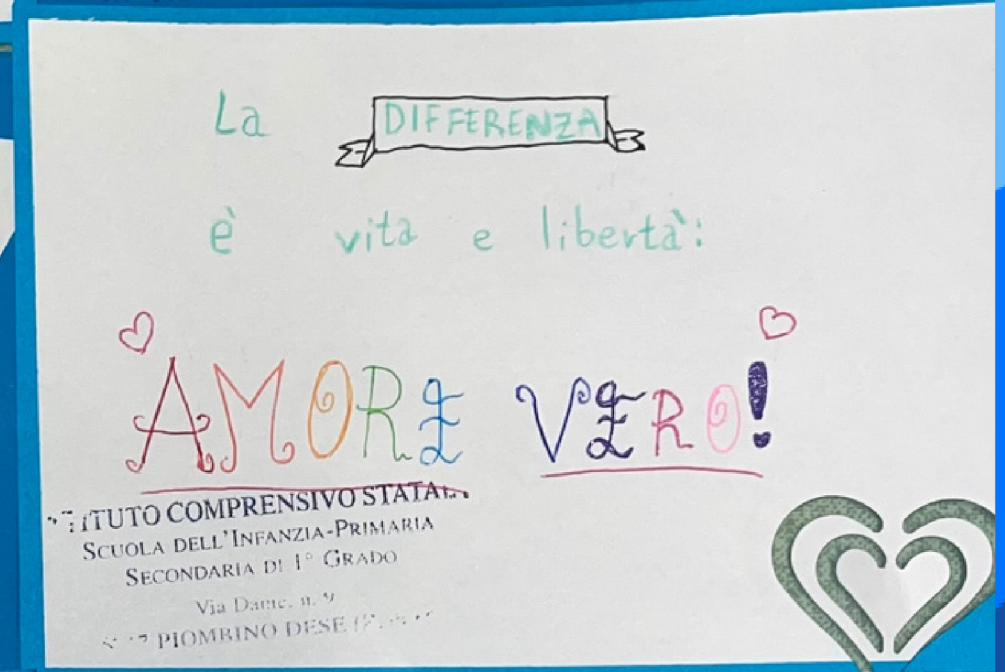 La DIFFERENZA
è vita e libertà:
AMORE VERO!
ISTITUTO COMPRENSIVO STATALE
SCUOLA DELL'INFANZIA-PRIMARIA
SECONDARIA DI 1° GRADO
Via Dante, n. 9
PIOMBINO DESE